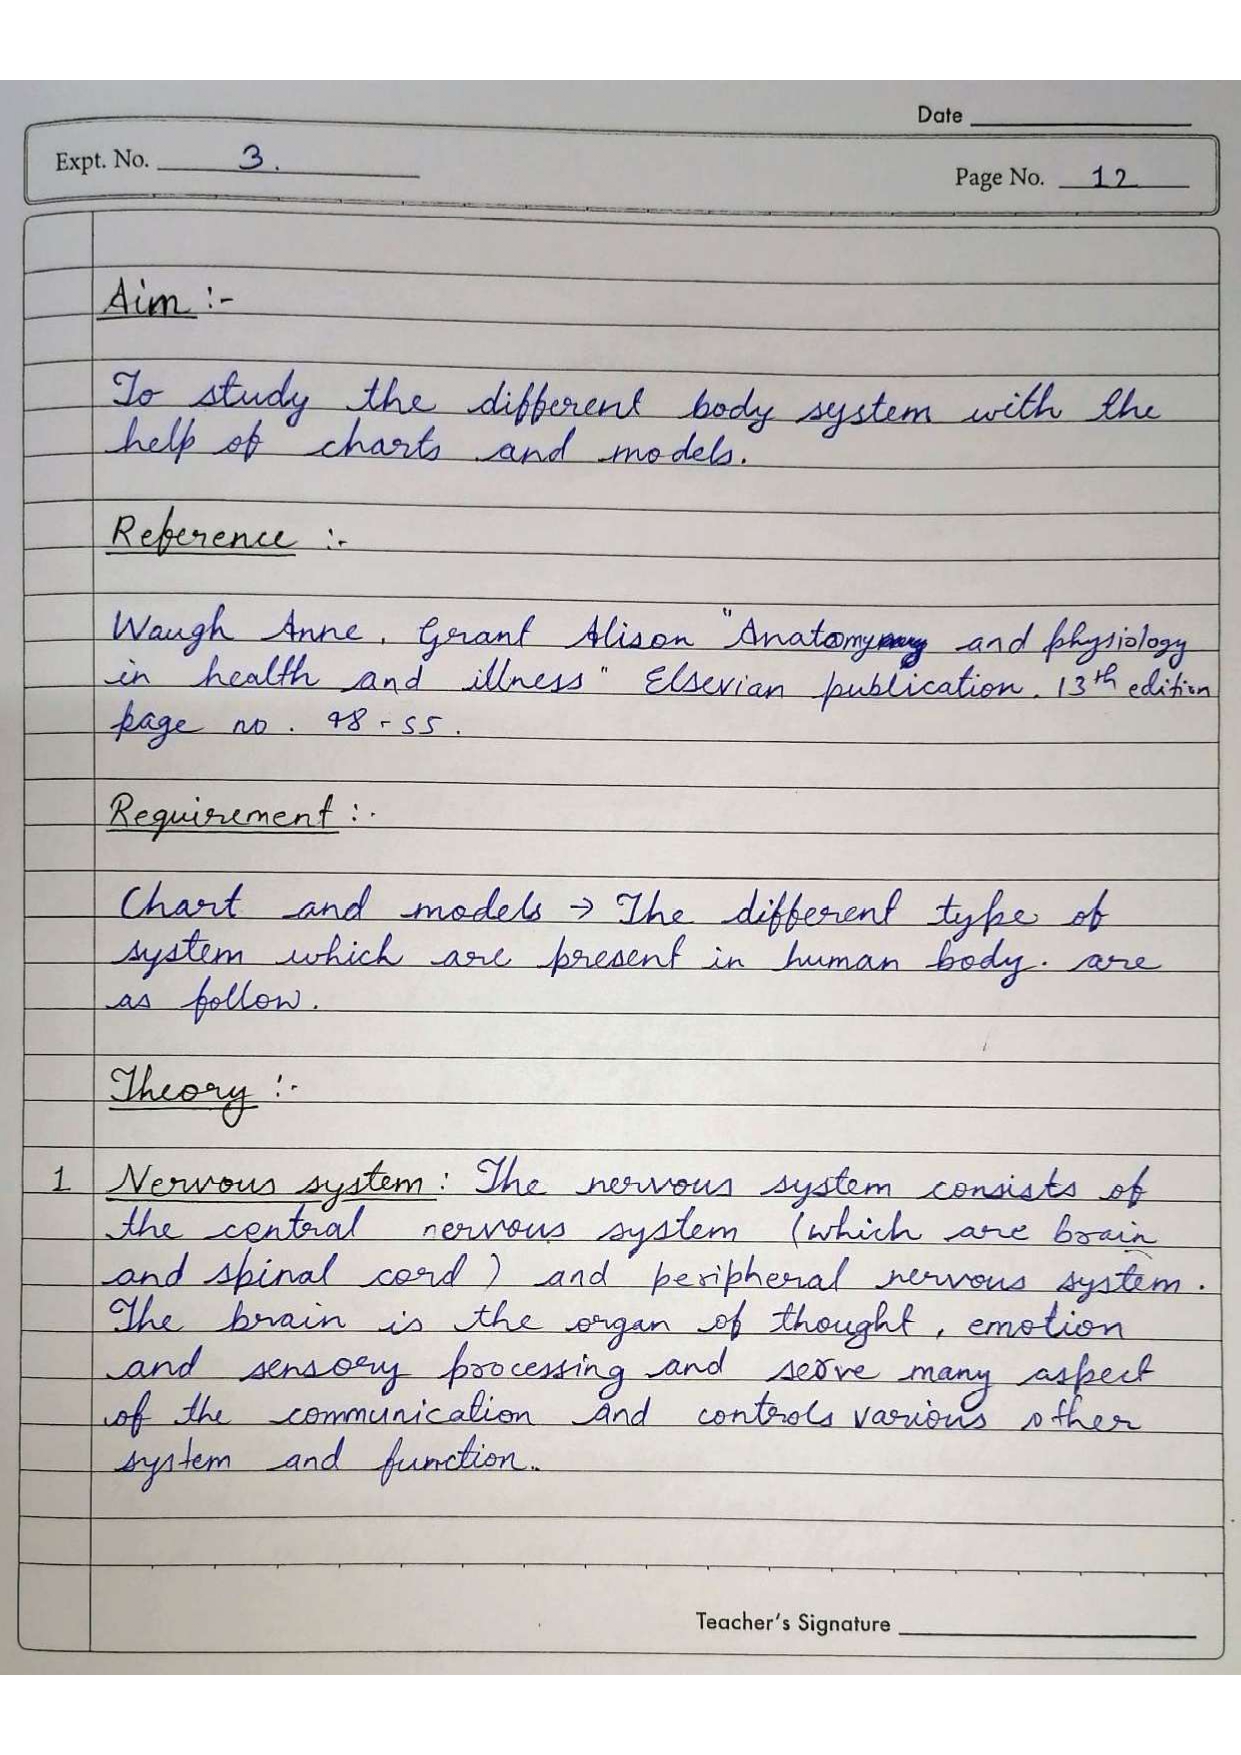 Date
Expt. No. 3.
Page No. 12
Aim :-
To study the different body system with the
help of charts and models.
Reference :-
Waugh Anne. Grant Alison "Anatomy and physiology
in health and illness" Elsevian publication. 13th edition
page no. 48-55.
Requirement :-
Chart and models → The different type of
system which are present in human body. are
as follow.
Theory :-
1 Nervous system : The nervous system consists of
the central nervous system (which are brain
and spinal cord) and peripheral nervous system.
The brain is the organ of thought, emotion
and sensory processing and serve many aspect
of the communication and controls various other
system and function.
Teacher's Signature